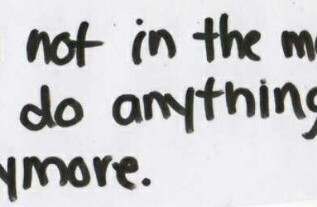 not in the m
do anything
ymore.